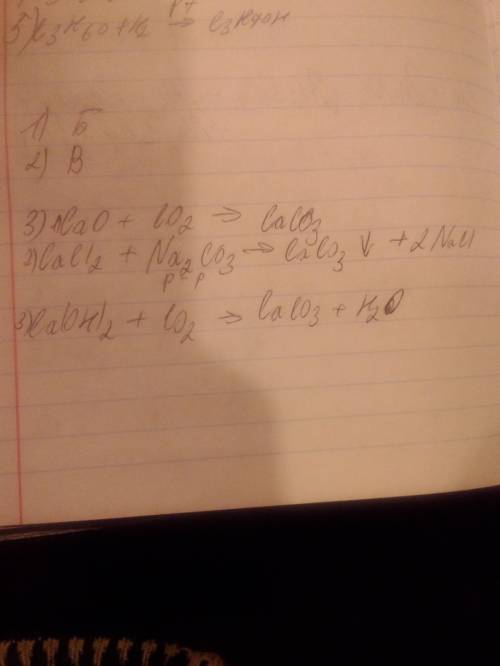 5) C3H6O + H2 → C3H7OH
1) Б
2) В
3) 1) CaO + CO2 → CaCO3
2) CaCl2 + Na2CO3 → CaCO3 ↓ + 2NaCl
р-р
3) Ca(OH)2 + CO2 → CaCO3 + H2O